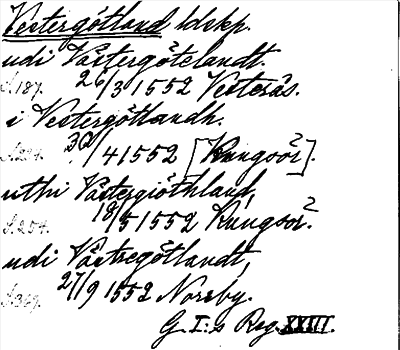 Vestergötland ldskp.
udi Västergötelandt.
S.187. 26/3 1552 Vesterås.
i Vestergötlandh.
30/4 1552 [Kungsör?].
uthi Västergiöthland,
S.254. 18/5 1552 Kungsör?.
udi Västregötlandt,
S.369. 27/9 1552 Norsby.
G. I:s Reg. XXIII.